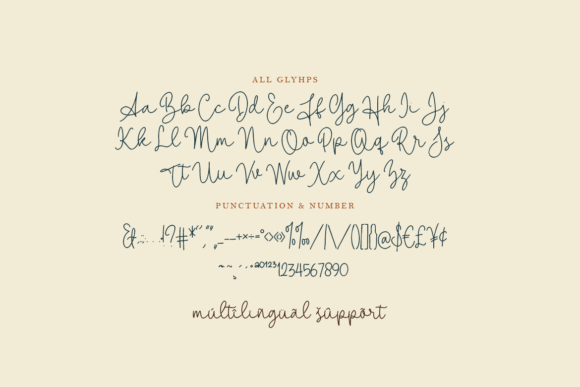 ALL GLYHPS
Aa Bb Cc Dd Ee Ff Gg Hh Ii Jj
Kk Ll Mm Nn Oo Pp Qq Rr Ss
Tt Uu Vv Ww Xx Yy Zz
PUNCTUATION & NUMBER
&!?#*+×÷=°<>«»%‰/|\/()[]{}@$€£¥¢
201231234567890
múltílíngüãl šüppõrt